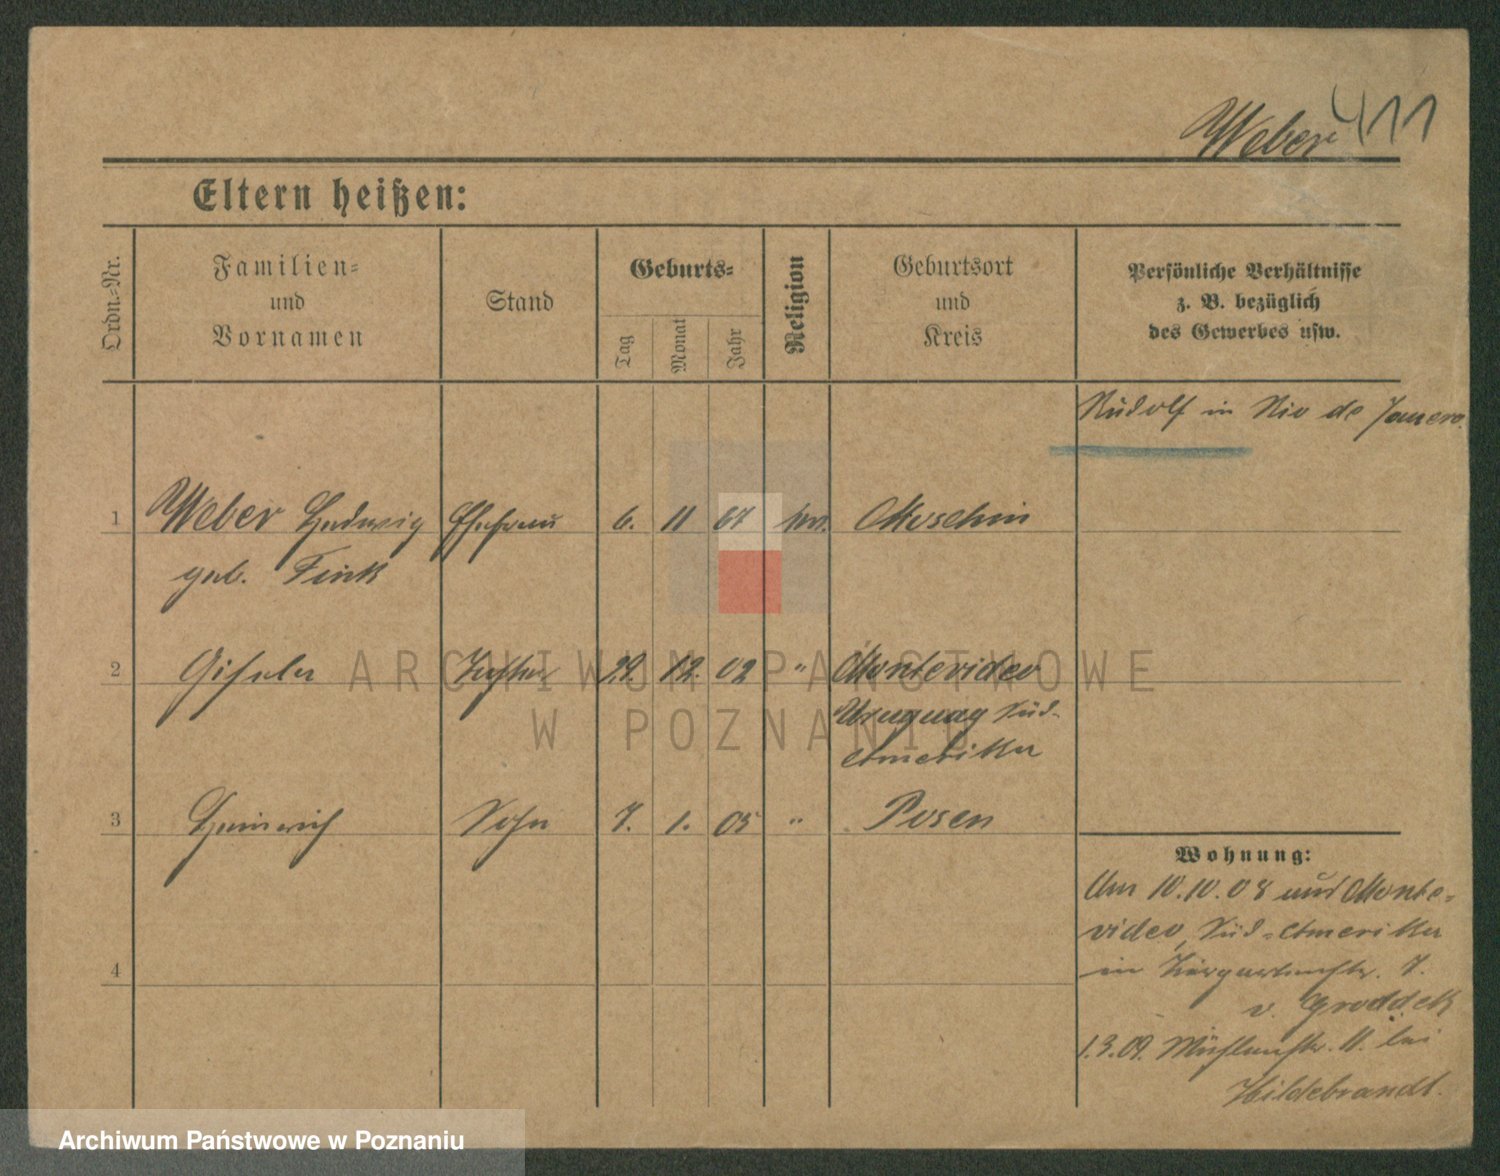 Weber 411
Eltern heißen:
Ordn.-Nr.
Familien-
und
Vornamen
Stand
Geburts-
Tag
Monat
Jahr
Religion
Geburtsort
und
Kreis
Persönliche Verhältnisse
z. B. bezüglich
des Gewerbes usw.
Rudolf in Rio de Janero.
1 Weber Hedwig Ehefrau 6. 11 67 ev. Moschin
geb. Fink
2 Gisela Tochter 29. 12. 02 " Montevideo
Uruguay Süd-
Amerika
3 Heinrich Sohn 7. 1. 05 " Posen
Wohnung:
Am 10.10.08 aus Monte-
video, Süd-Amerika
in Tiergartenstr. 7.
v. Groddeck
4
1.3.09. Mühlenstr. 11. bei
Hildebrandt.
ARCHIWUM PAŃSTWOWE
W POZNANIU
Archiwum Państwowe w Poznaniu